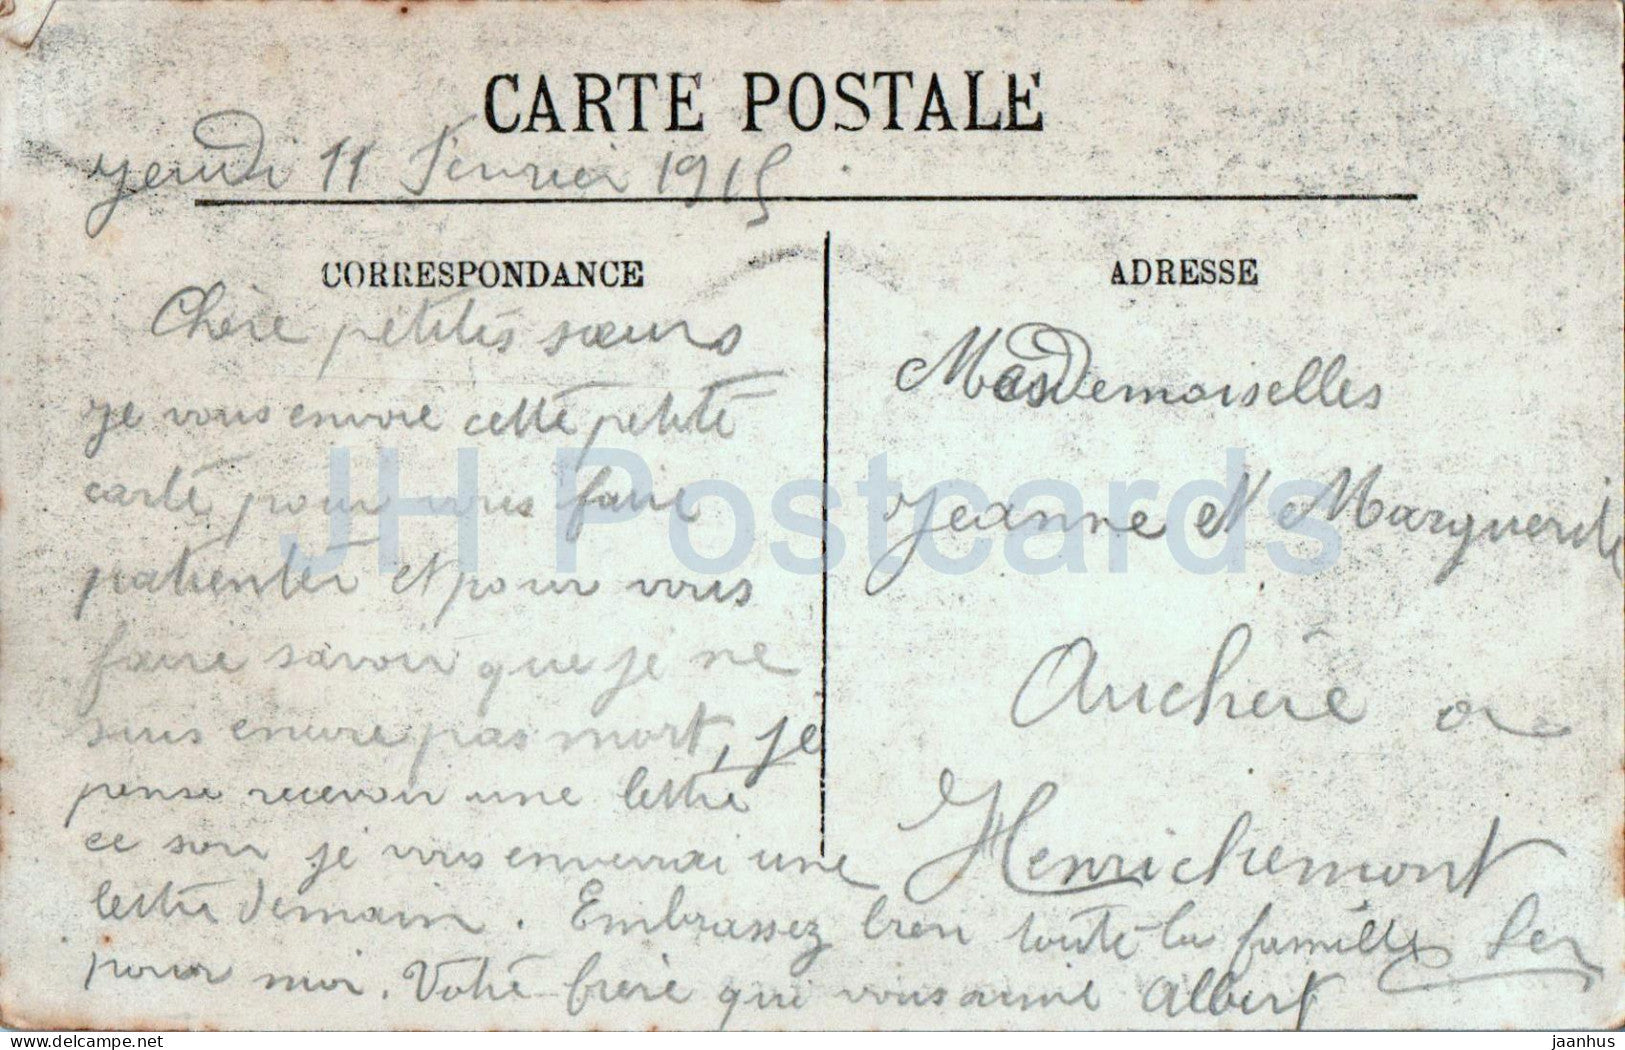 CARTE POSTALE
Jeudi 11 Février 1915
CORRESPONDANCE
Chère petites sœurs
je vous envoie cette petite
carte pour vous faire
patienter et pour vous
faire savoir que je ne
suis encore pas mort, je
pense recevoir une lettre
ce soir je vous enverrai une
lettre demain. Embrassez bien toute la famille
pour moi. Votre frère qui vous aime Albert
ADRESSE
Mesdemoiselles
Jeanne et Marguerite
Auchère à
Henrichemont
JH Postcards
hippostcard.com
jaanhus